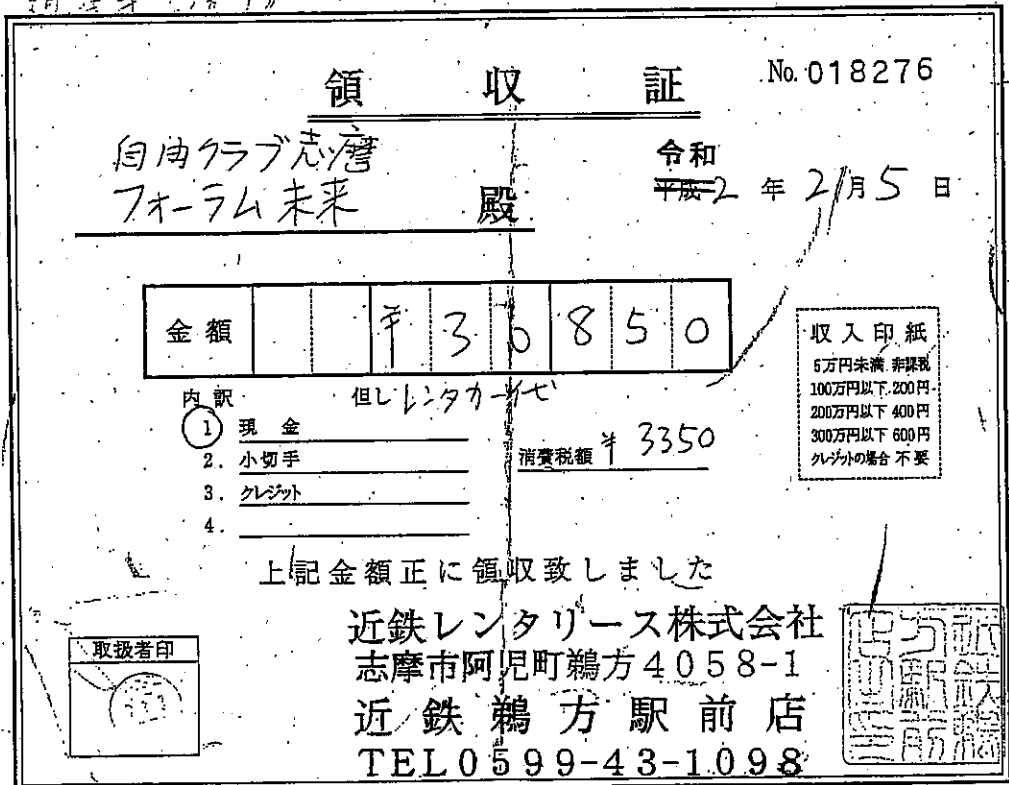 領収証
No. 018276
自由クラブ志摩
フォーラム未来 殿
令和
平成 2 年 2 月 5 日
金額 ¥36850
内訳 但しレンタカー代
1 現金
2. 小切手
3. クレジット
4.
消費税額 ¥3350
収入印紙
5万円未満 非課税
100万円以下 200円
200万円以下 400円
300万円以下 600円
クレジットの場合 不要
上記金額正に領収致しました
取扱者印
近鉄レンタリース株式会社
志摩市阿児町鵜方4058-1
近鉄鵜方駅前店
TEL0599-43-1098